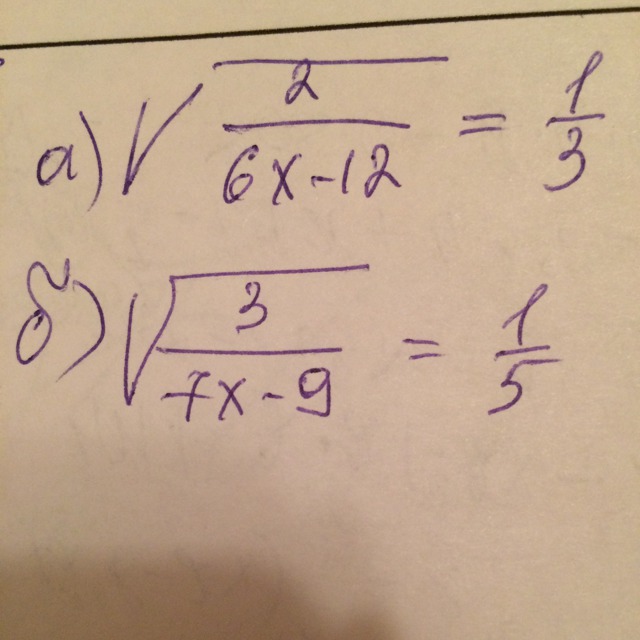 а) √(2/(6x-12)) = 1/3
б) √(3/(7x-9)) = 1/5